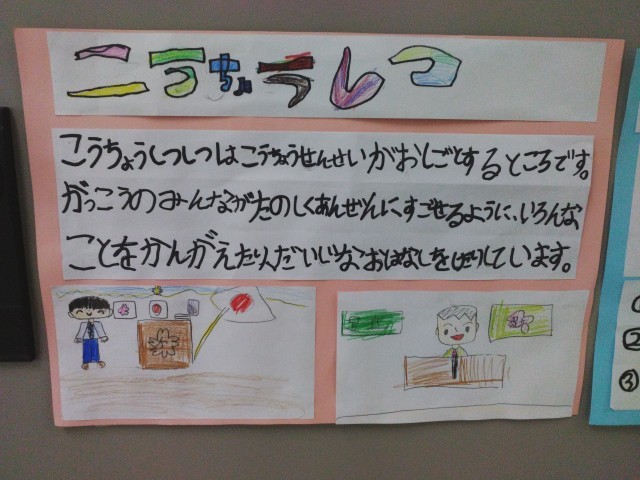 こうちょうしつ
こうちょうしつしつはこうちょうせんせいがおしごとするところです。
がっこうのみんながたのしくあんぜんにすごせるように、いろんな
ことをかんがえたり、だいじなおはなしをしたりしています。
②
③